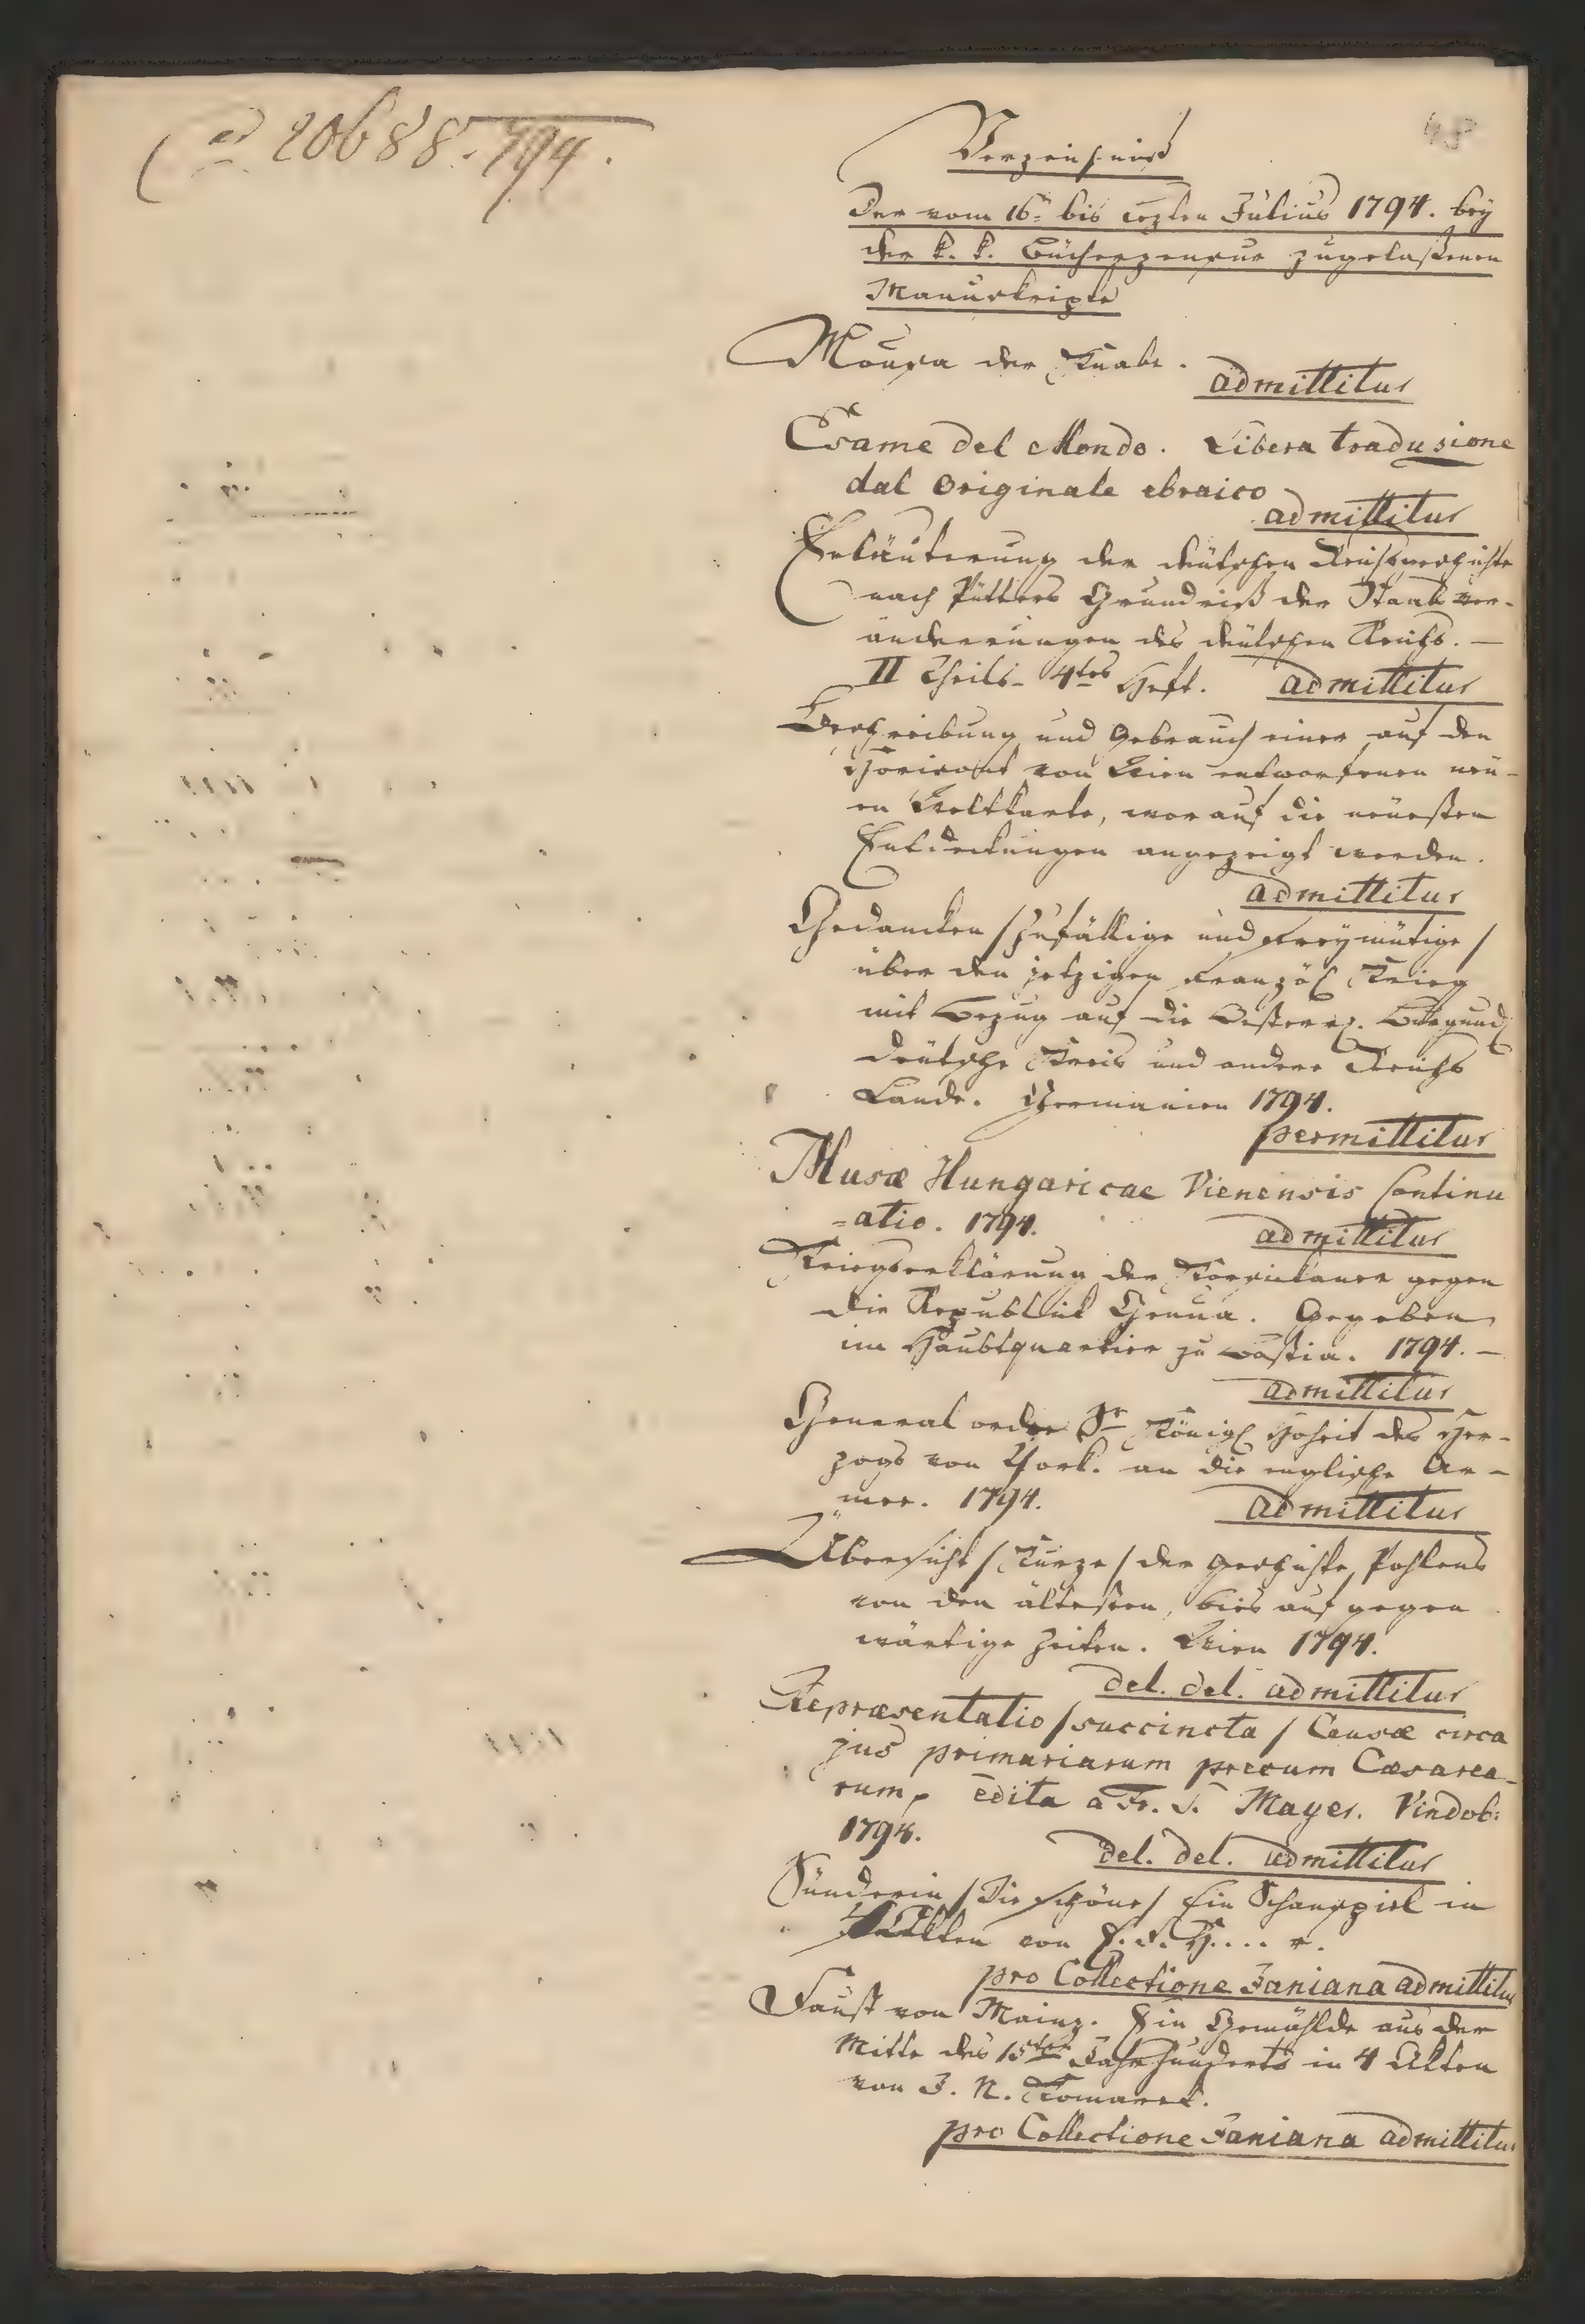 ad 20688. 794.
48
Verzeichniß
der vom 16n bis lezten Julius 1794. bey
der k. k. Bücherzensur zugelaßenen
Manuskripte
Mousa der Knabe.
admittitur
Esame del Mondo. Libera tradusione
dal originale ebraico
admittitur
Erläuterung der deutschen Reichsgeschichte
nach Pütters Grundriß der Staatsver-
änderungen des deutschen Reichs. —
II Theils 4tes Heft. admittitur
Beschreibung und Gebrauch einer auf den
Horizont von Wien entworfenen neu-
en Weltkarte, worauf die neuesten
Entdeckungen angezeigt werden.
admittitur
Gedancken /Zufällige und freymütige/
über den jetzigen französ. Krieg
mit Bezug auf die Oesterr. Burgund.
deutsche Kreis und andere Reichs
Lande. Germanien 1794.
permittitur
Musæ Hungaricae Vienensis Continu
=atio. 1794.
admittitur
Kriegserklärung der Korsikaner gegen
die Republik Genua. Gegeben
im Haubtquartier zu Bastia. 1794. —
admittitur
General order Sr Königl. Hoheit des Her-
zogs von York. an die englische Ar-
mee. 1794.
admittitur
Übersicht /Kurze/ der Geschichte Pohlens
von den ältesten, bies auf gegen
wärtige Zeiten. Wien 1794.
del. del. admittitur
Repræsentatio /succincta/ Causæ circa
jus primariarum precum Cæsarea-
rum, edita a Fr. T. Mayer. Vindob:
1794.
del. del. admittitur
Sünderin /Die schöne/ Ein Schauspiel in
4 Akten von F. v. H.... r.
pro Collectione Janiana admittitur
Faust von Mainz. Ein Gemählde aus der
Mitte des 15ten Jahrhunderts in 4 Akten
von J. N. Komarek.
pro Collectione Janiana admittitur